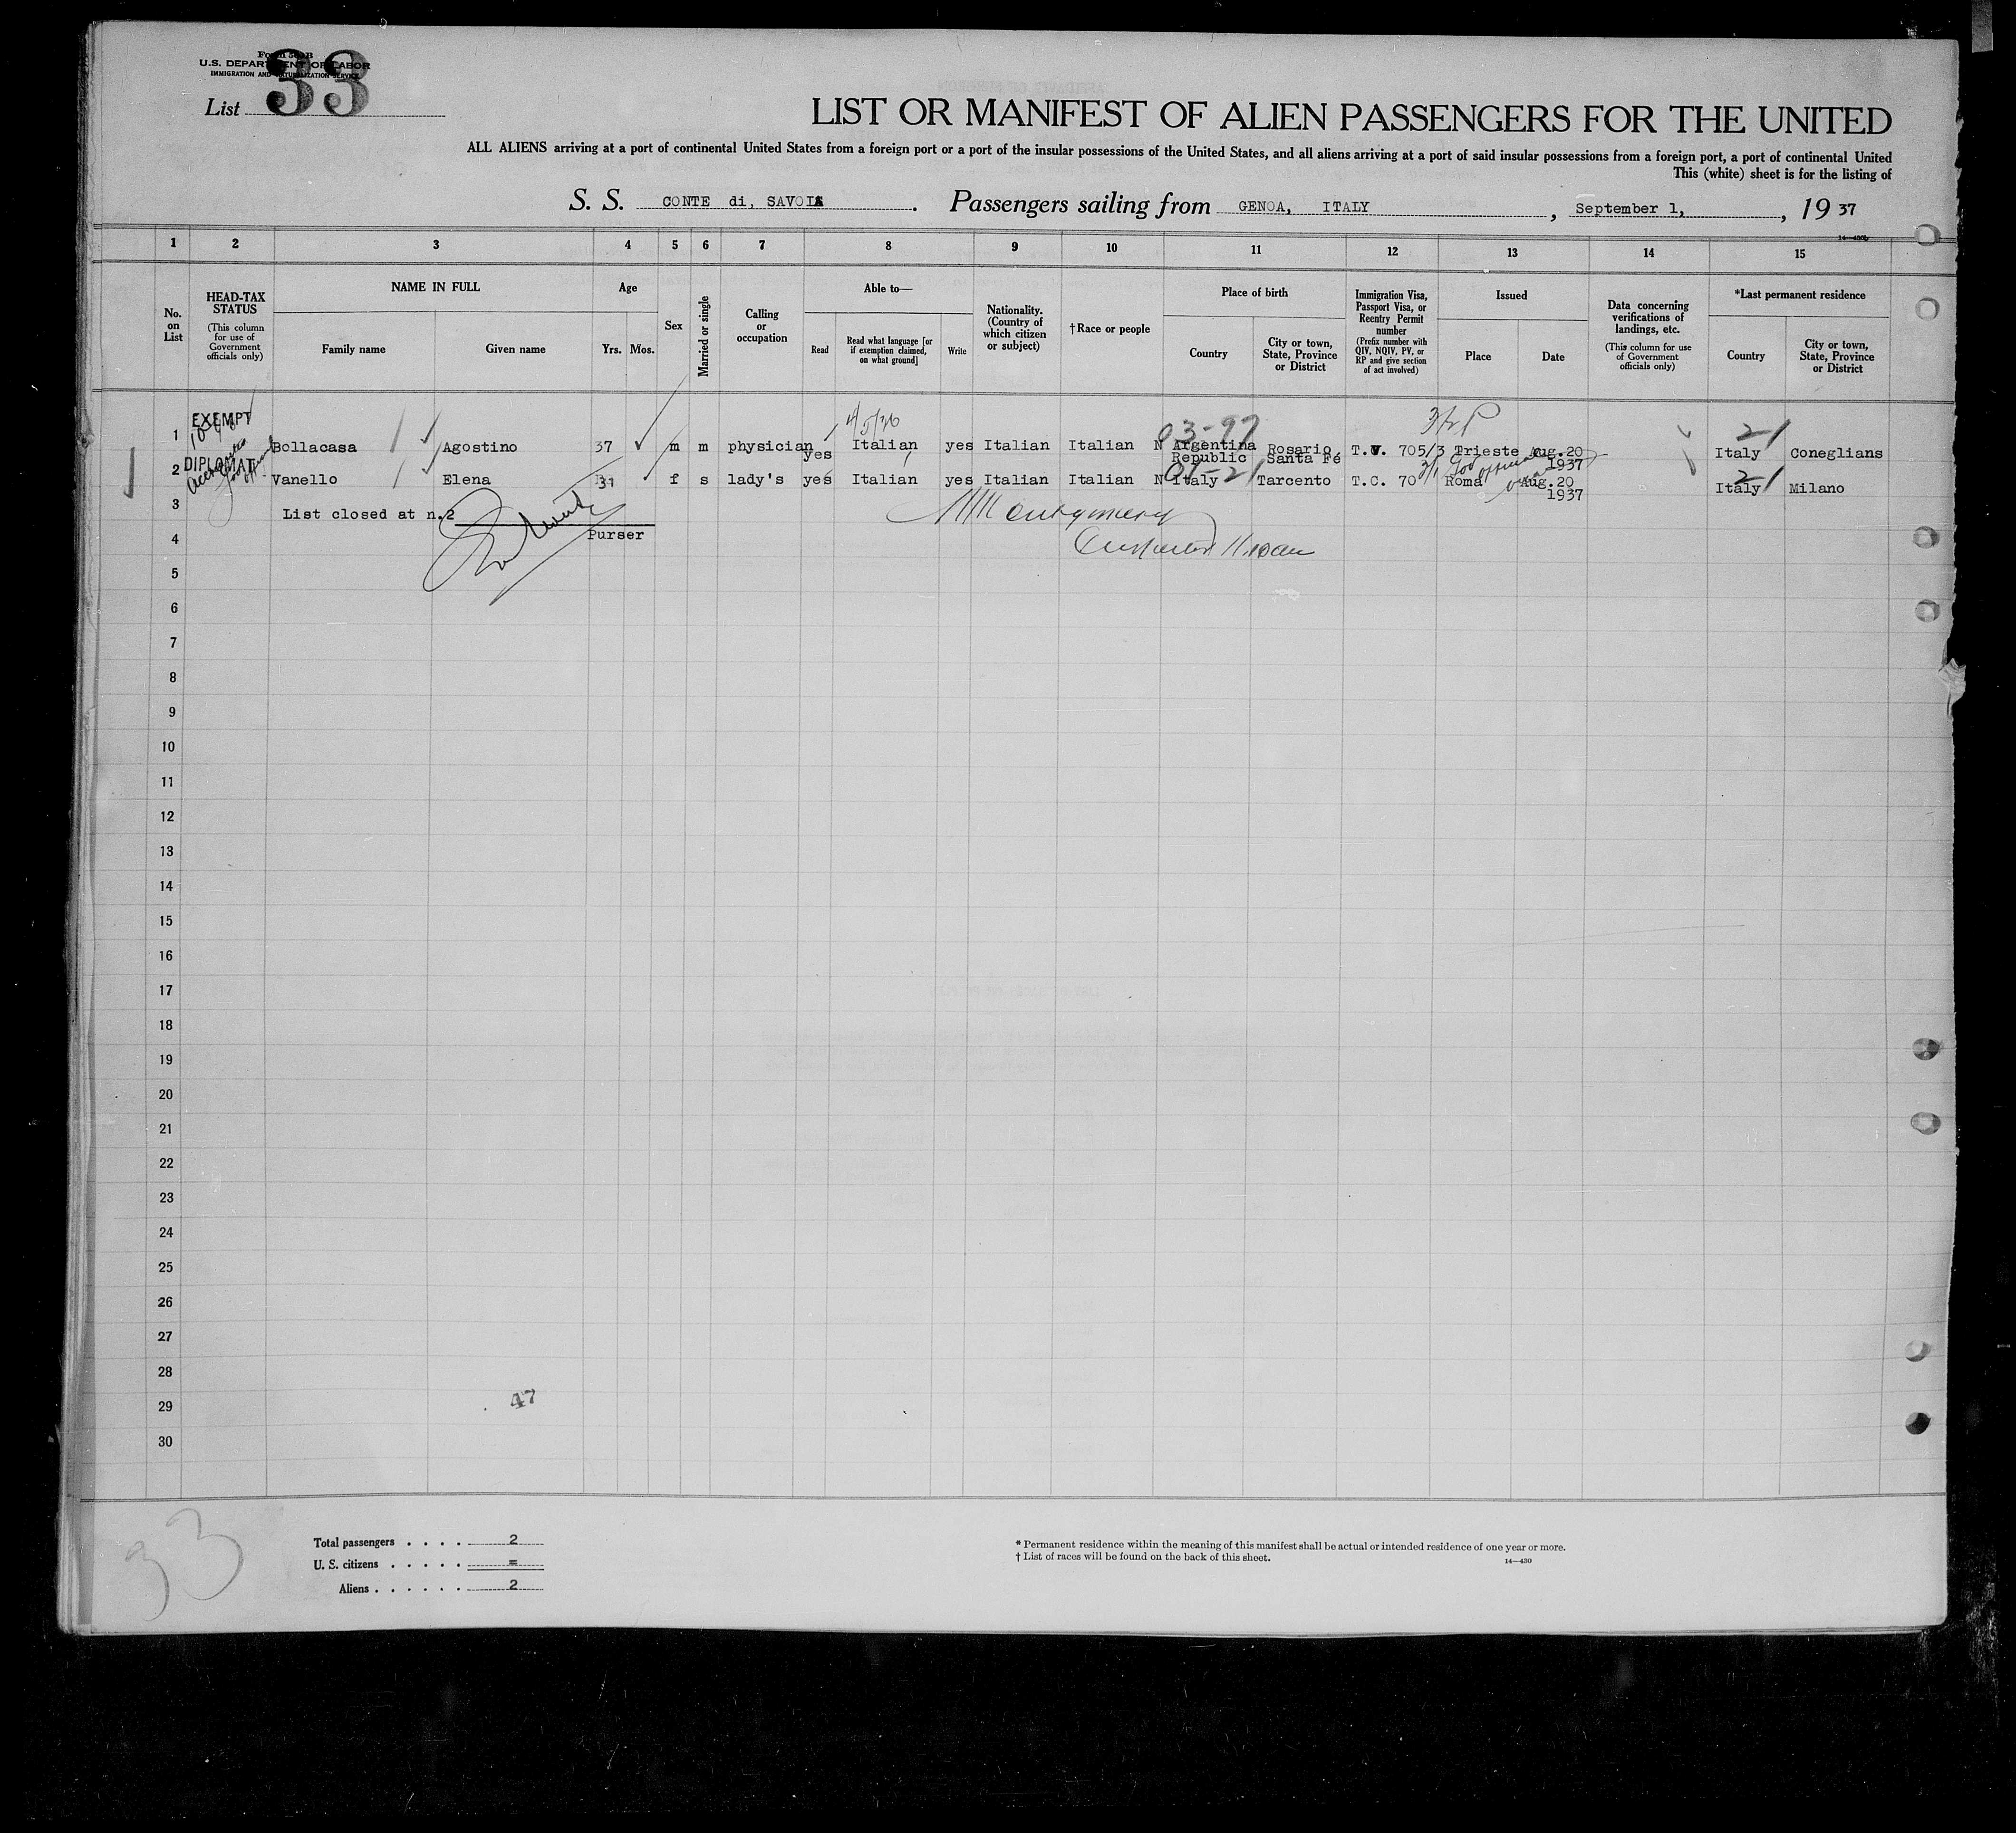 Form 500 B
U.S. DEPARTMENT OF LABOR
IMMIGRATION AND NATURALIZATION SERVICE
List 33
LIST OR MANIFEST OF ALIEN PASSENGERS FOR THE UNITED
ALL ALIENS arriving at a port of continental United States from a foreign port or a port of the insular possessions of the United States, and all aliens arriving at a port of said insular possessions from a foreign port, a port of continental United
This (white) sheet is for the listing of
S. S. CONTE di, SAVOIA. Passengers sailing from GENOA, ITALY, September 1, 19 37
1 2 3 4 5 6 7 8 9 10 11 12 13 14 15
No. on List
HEAD-TAX STATUS
(This column for use of Government officials only)
NAME IN FULL
Family name Given name
Age
Yrs. Mos.
Sex
Married or single
Calling or occupation
Able to—
Read
Read what language [or if exemption claimed, on what ground]
Write
Nationality. (Country of which citizen or subject)
†Race or people
Place of birth
Country
City or town, State, Province or District
Immigration Visa, Passport Visa, or Reentry Permit number
(Prefix number with QIV, NQIV, PV, or RP and give section of act involved)
Issued
Place Date
Data concerning verifications of landings, etc.
(This column for use of Government officials only)
*Last permanent residence
Country
City or town, State, Province or District
EXEMPT
03-97
1 Bollacasa Agostino 37 m m physician yes Italian yes Italian Italian N Argentina Republic Rosario Santa Fé T.V. 705/3 Trieste Aug.20 1937 Italy 21 Coneglians
DIPLOMAT
01-21
2 Vanello Elena 31 f s lady's yes Italian yes Italian Italian N Italy Tarcento T.C. 70 Roma Aug.20 1937 Italy 21 Milano
3 List closed at n.2
Montgomery
4 Purser
5
6
7
8
9
10
11
12
13
14
15
16
17
18
19
20
21
22
23
24
25
26
27
28
29 47
30
33
Total passengers . . . . 2
U. S. citizens . . . . . =
Aliens . . . . . . 2
* Permanent residence within the meaning of this manifest shall be actual or intended residence of one year or more.
† List of races will be found on the back of this sheet.
14—430